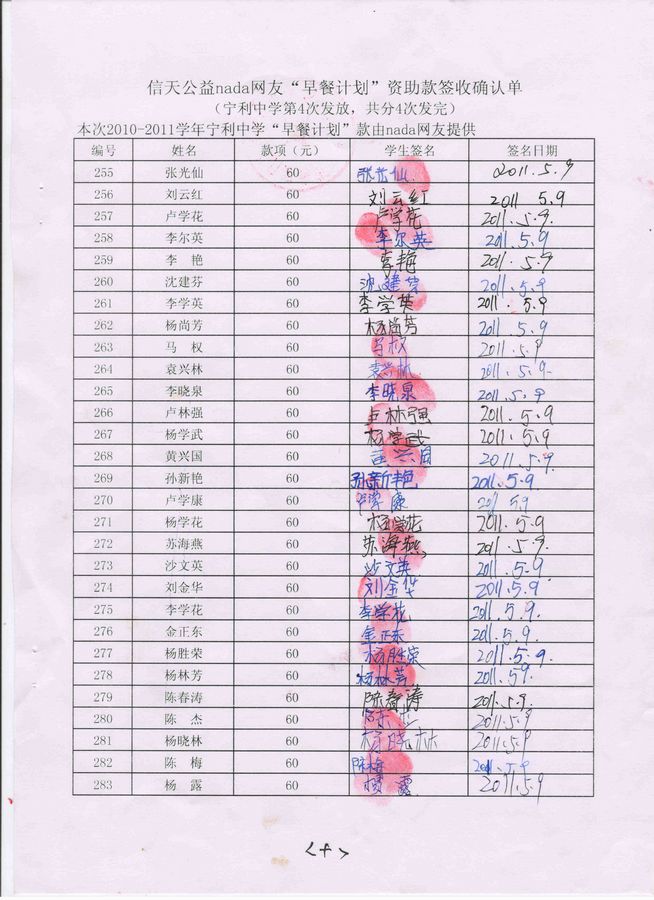 信天公益nada网友“早餐计划”资助款签收确认单
（宁利中学第4次发放，共分4次发完）
本次2010-2011学年宁利中学“早餐计划”款由nada网友提供
编号 姓名 款项（元） 学生签名 签名日期
255 张光仙 60 张光仙 2011.5.9
256 刘云红 60 刘云红 2011 5.9
257 卢学花 60 卢学花 2011.5.9.
258 李尔英 60 李尔英 2011.5.9
259 李 艳 60 李艳 2011.5.9
260 沈建芬 60 沈建芬 2011.5.9
261 李学英 60 李学英 2011.5.9
262 杨尚芳 60 杨尚芳 2011.5.9
263 马 权 60 马权 2011.5.9
264 袁兴林 60 袁兴林 2011.5.9.
265 李晓泉 60 李晓泉 2011.5.9
266 卢林强 60 卢林强 2011.5.9
267 杨学武 60 杨学武 2011.5.9
268 黄兴国 60 黄兴国 2011.5.9.
269 孙新艳 60 孙新艳 2011.5.9.
270 卢学康 60 卢学康 2011 5.9
271 杨学花 60 杨学花 2011.5.9
272 苏海燕 60 苏海燕 2011.5.9.
273 沙文英 60 沙文英 2011.5.9
274 刘金华 60 刘金华 2011.5.9.
275 李学花 60 李学花 2011.5.9.
276 金正东 60 金正东 2011.5.9.
277 杨胜荣 60 杨胜荣 2011.5.9.
278 杨林芳 60 杨林芳 2011.59.
279 陈春涛 60 陈春涛 2011.5.9.
280 陈 杰 60 陈杰 2011.5.9
281 杨晓林 60 杨晓林 2011.5.9
282 陈 梅 60 陈梅 2011.5.9
283 杨 露 60 杨露 2011.5.9